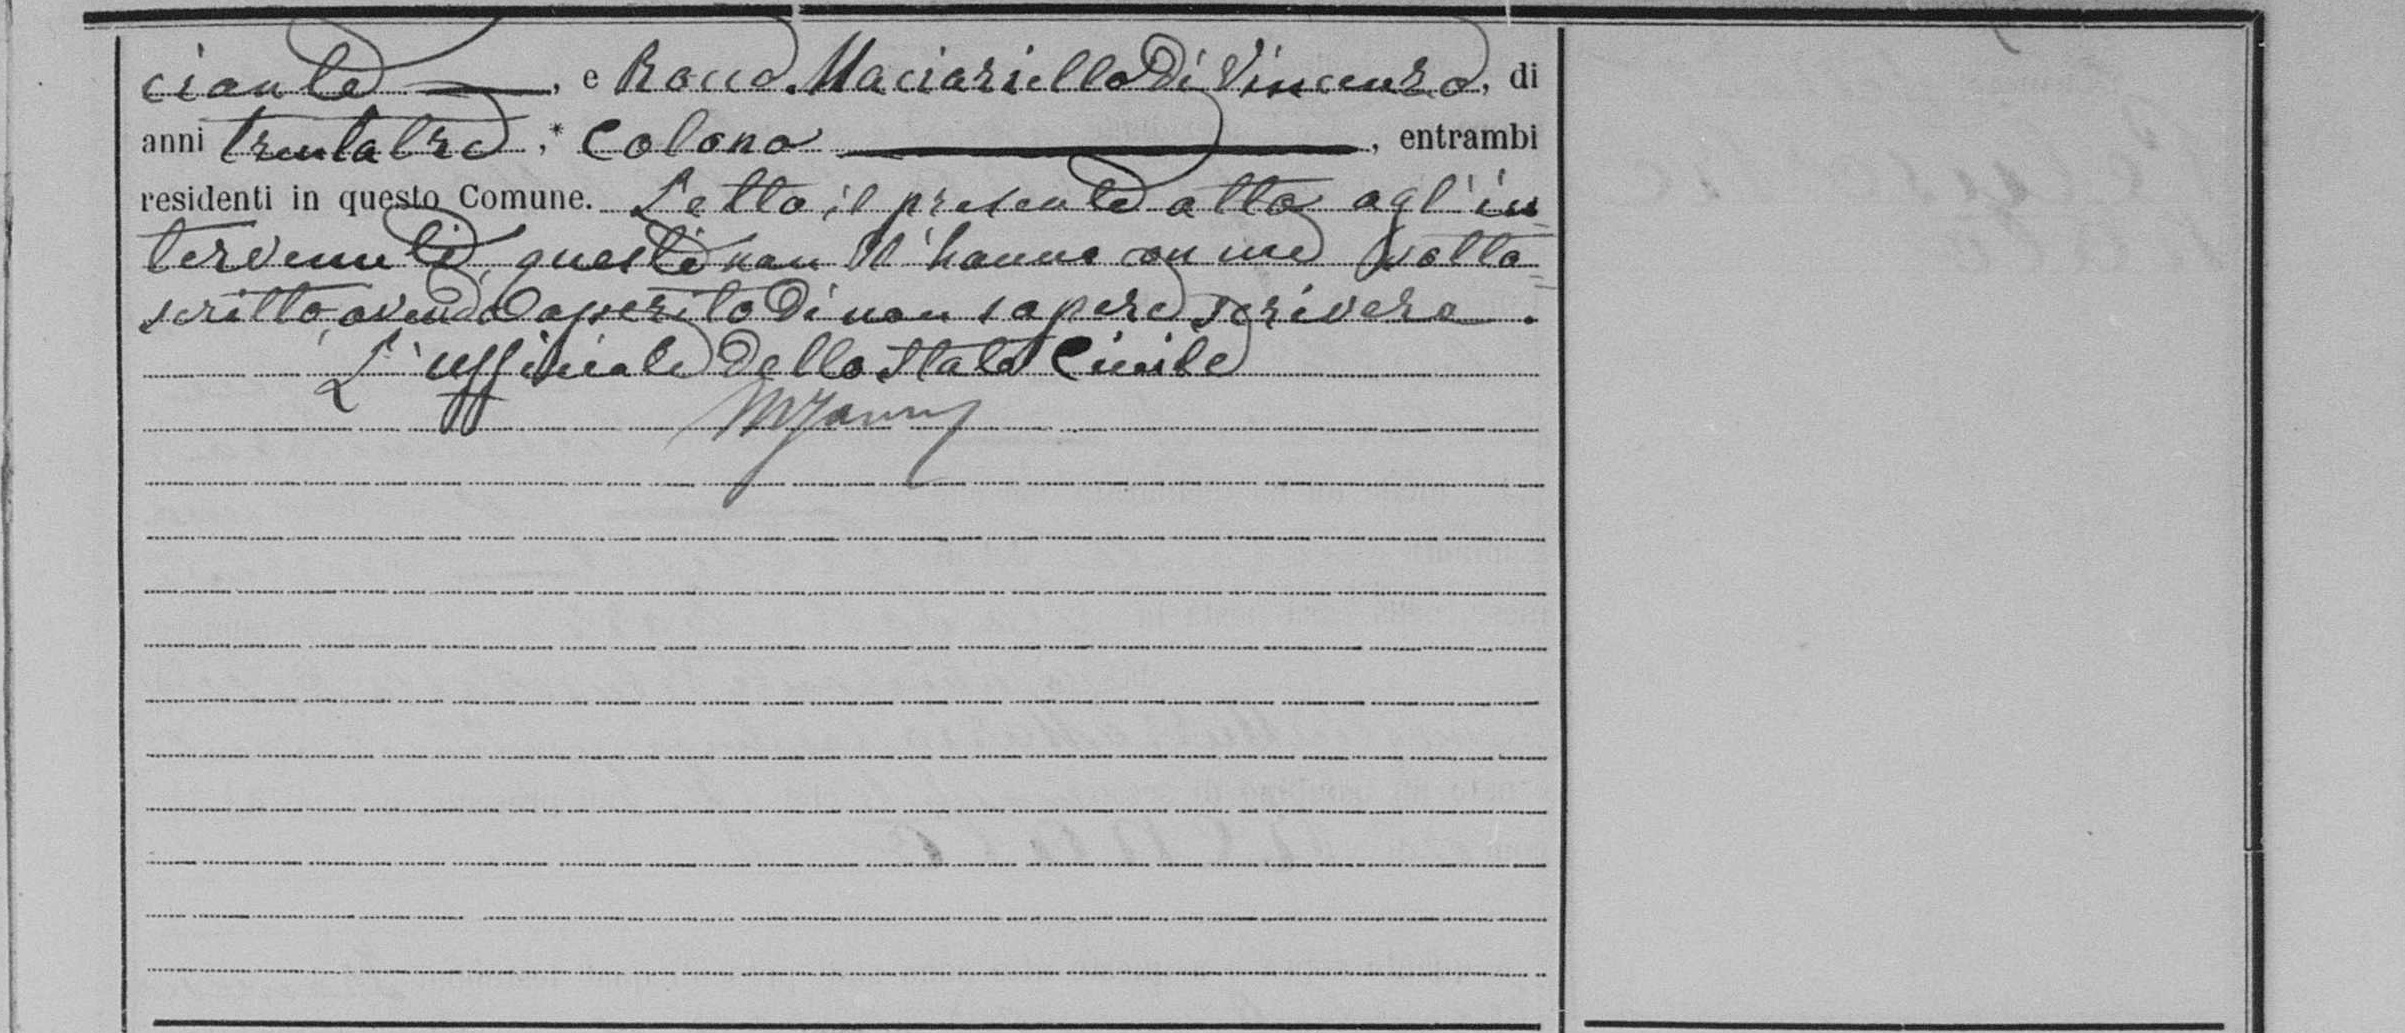 ciante, e Rocco Maciariello di Vincenzo, di
anni trentatre, * Colono, entrambi
residenti in questo Comune. Letto il presente atto agl'in
tervenuti, questi non l'hanno con me sotto=
scritto, avendo asserito di non sapere scrivere.
L'uffiziale dello Stato Civile